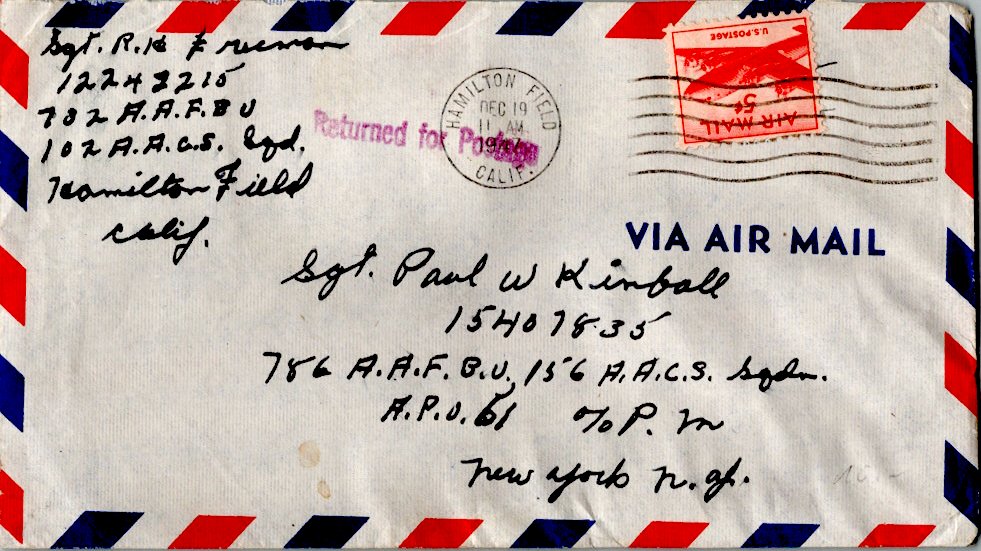 Sgt. R. H Freeman
12242215
702 A.A.F.B U
102 A.A.C.S. Sqd.
Hamilton Field
Calif.
Returned for Postage
HAMILTON FIELD
DEC 19
11 AM
1946
CALIF.
U.S. POSTAGE
5¢
AIR MAIL
VIA AIR MAIL
Sgt. Paul W Kimball
15407835
786 A.A.F.B.U., 156 A.A.C.S. Sqdn.
A.P.O. 61 c/o P. M
New York N.Y.